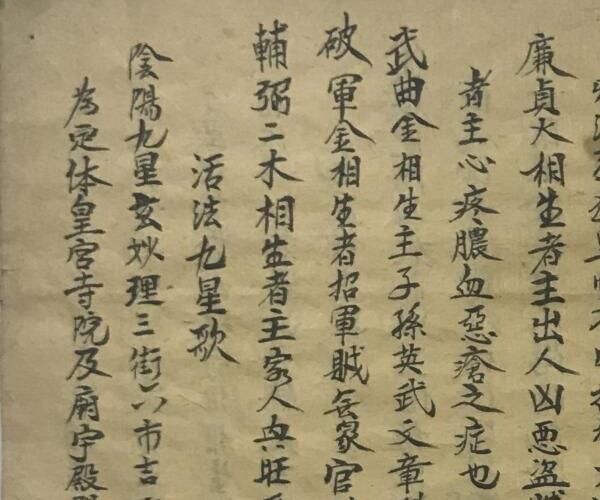 廉貞火相生者主出人凶惡盜
者主心疼膿血惡瘡之症也
武曲金相生主子孫英武文章
破軍金相生者招軍賊兵家官
輔弼二木相生者主家人興旺
活法九星歌
陰陽九星玄妙理三街六市吉
為定体皇宮寺院及廟宇殿